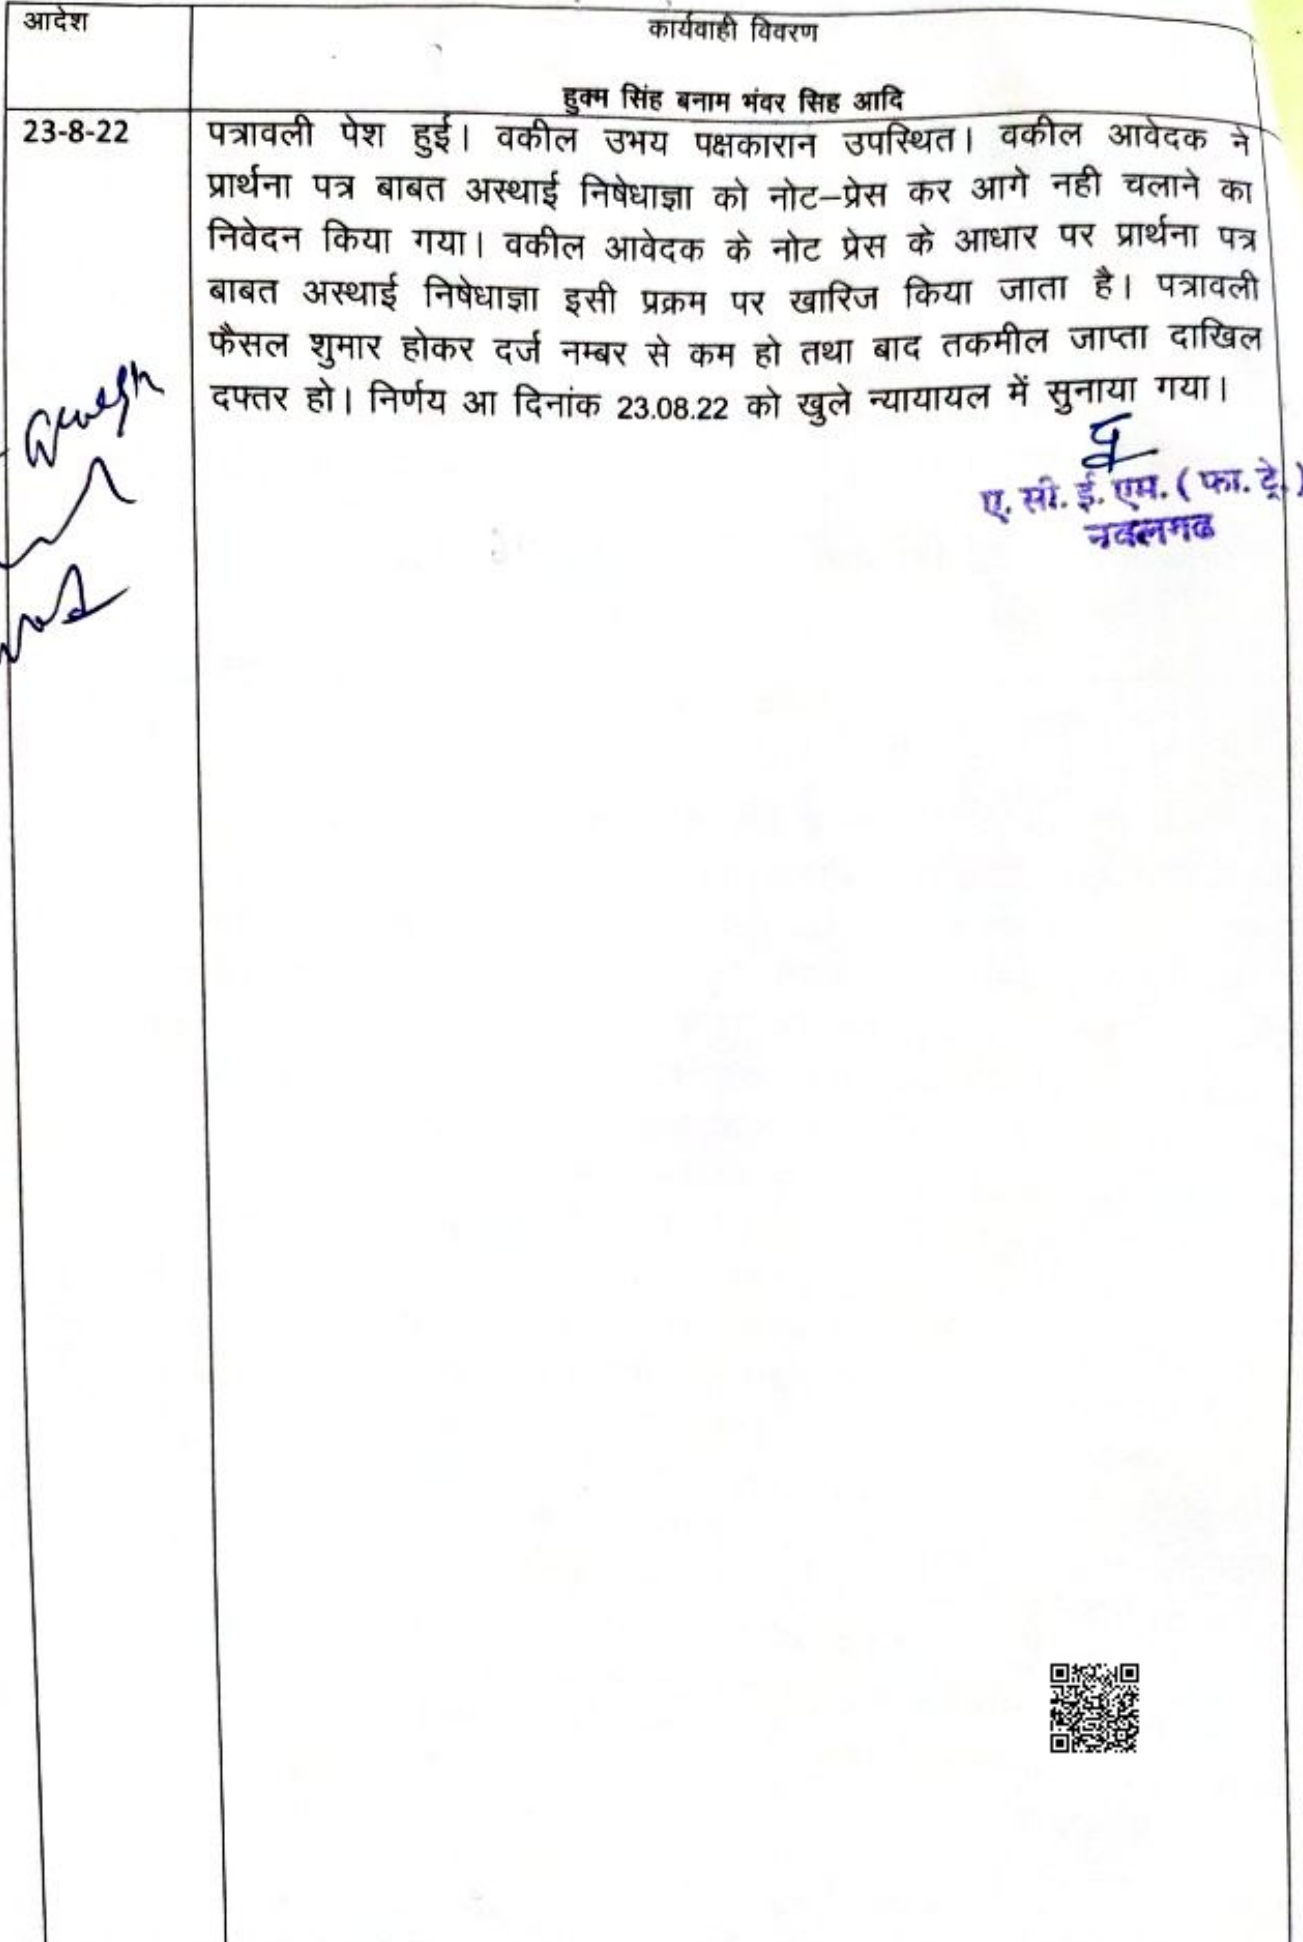 आदेश
कार्यवाही विवरण
हुक्म सिंह बनाम भंवर सिह आदि
23-8-22
पत्रावली पेश हुई। वकील उभय पक्षकारान उपस्थित। वकील आवेदक ने
प्रार्थना पत्र बाबत अस्थाई निषेधाज्ञा को नोट–प्रेस कर आगे नही चलाने का
निवेदन किया गया। वकील आवेदक के नोट प्रेस के आधार पर प्रार्थना पत्र
बाबत अस्थाई निषेधाज्ञा इसी प्रक्रम पर खारिज किया जाता है। पत्रावली
फैसल शुमार होकर दर्ज नम्बर से कम हो तथा बाद तकमील जाप्ता दाखिल
दफ्तर हो। निर्णय आ दिनांक 23.08.22 को खुले न्यायायल में सुनाया गया।
ए. सी. ई. एम. ( फा. ट्रे. )
नवलगढ